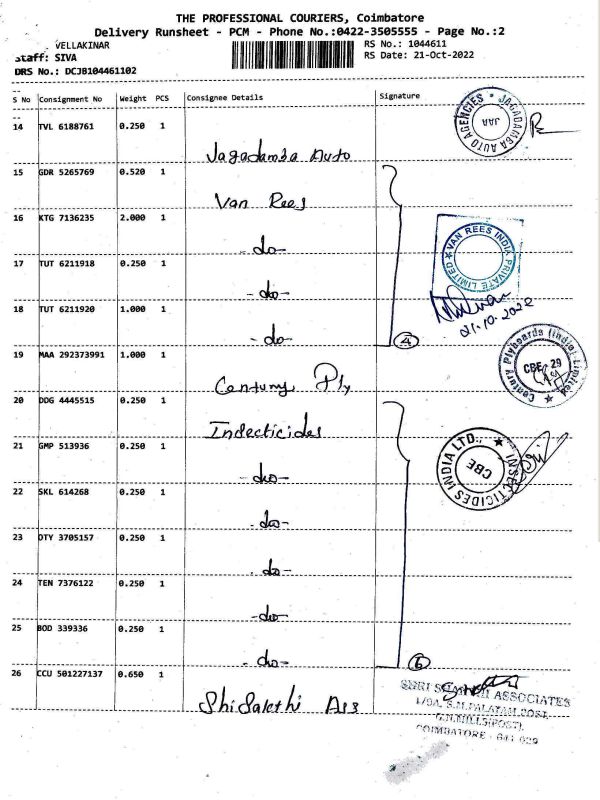 THE PROFESSIONAL COURIERS, Coimbatore
Delivery Runsheet - PCM - Phone No.:0422-3505555 - Page No.:2
VELLAKINAR
Staff: SIVA
DRS No.: DCJB104461102
RS No.: 1044611
RS Date: 21-Oct-2022
S No Consignment No Weight PCS Consignee Details Signature
14 TVL 6188761 0.250 1 Jagadamba Auto
JAGADAMBA AUTO AGENCIES
15 GDR 5265769 0.520 1 Van Rees
16 KTG 7136235 2.000 1 - do -
VAN REES INDIA PRIVATE LIMITED
17 TUT 6211918 0.250 1 - do -
21.10.2022
18 TUT 6211920 1.000 1 - do - 4
19 MAA 292373991 1.000 1 Century Ply
Century Plyboards (India) Limited
CBE 29
20 DDG 4445515 0.250 1 Indecticides
21 GMP 513936 0.250 1 - do -
INSECTICIDES INDIA LTD.,
CBE
22 SKL 614268 0.250 1 - do -
23 DTY 3705157 0.250 1 - do -
24 TEN 7376122 0.250 1 - do -
25 BOD 339336 0.250 1 - do - 6
26 CCU 501227137 0.650 1 Shi Sakthi Ass
SHRI ASSOCIATES
G.N.MILLS(POST),
COIMBATORE - 641 029